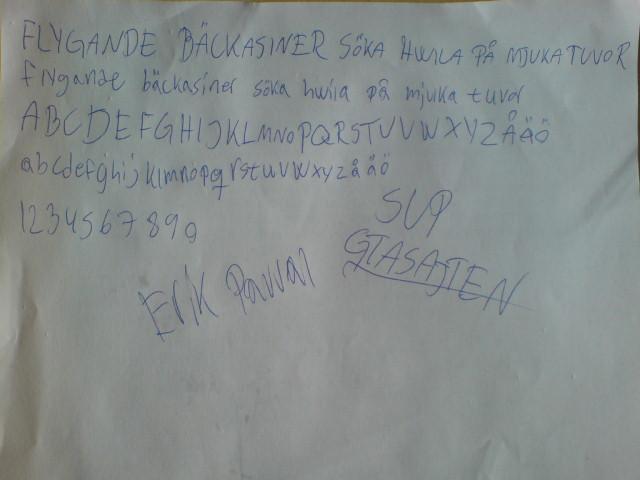 FLYGANDE BÄCKASINER SÖKA HWILA PÅ MJUKA TUVOR
flygande bäckasiner söka hwila på mjuka tuvor
ABCDEFGHIJKLMNOPQRSTUVWXYZÅÄÖ
abcdefghijklmnopqrstuvwxyzåäö
1234567890
SUP
GTASAJTEN
Erik